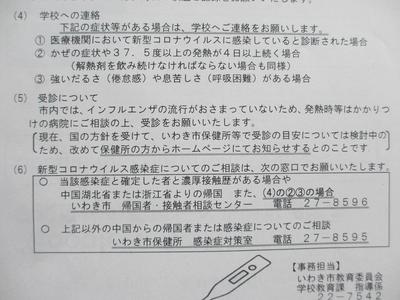 (4) 学校への連絡
下記の症状等がある場合は、学校へご連絡をお願いします。
① 医療機関において新型コロナウイルスに感染していると診断された場合
② かぜの症状や37.5度以上の発熱が4日以上続く場合
(解熱剤を飲み続けなければならない場合も同様)
③ 強いだるさ(倦怠感)や息苦しさ(呼吸困難)がある場合
(5) 受診について
市内では、インフルエンザの流行がおさまっていないため、発熱時等はかかりつ
けの病院にご相談の上、受診をお願いいたします。
現在、国の方針を受けて、いわき市保健所等で受診の目安については検討中の
ため、改めて保健所の方からホームページにてお知らせするとのことです
(6) 新型コロナウイルス感染症についてのご相談は、次の窓口でお願いいたします。
○ 当該感染症と確定した者と濃厚接触歴がある場合や
中国湖北省または浙江省よりの帰国 また、(4)の②③の場合
いわき市 帰国者・接触者相談センター 電話 27-8596
○ 上記以外の中国からの帰国者または感染症についてのご相談
いわき市保健所 感染症対策室 電話 27-8595
【事務担当】
いわき市教育委員会
学校教育課 指導係
22-7542